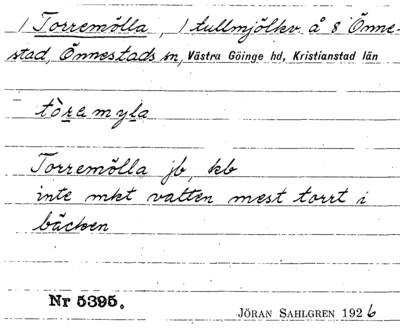 1 Torremölla, 1 tullmjölkv å 8 Önne-
stad, Önnestads sn, Västra Göinge hd, Kristianstad län
tòremyla
Torremölla jb, kb
inte mkt vatten mest torrt i
bäcken
Nr 5395.
JÖRAN SAHLGREN 1926